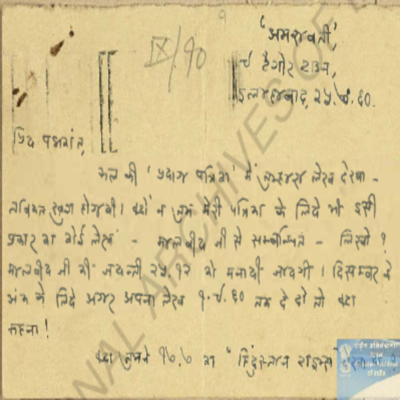 IX/90
'अमरावती',
८ टैगोर टाउन,
इलाहाबाद, २५.७.६०.
प्रिय पद्मकांत,
कल की 'प्रयाग पत्रिका' में तुम्हारा लेख देखा -
तबियत खुश होगयी। क्यों न तुम मेरी पत्रिका के लिये भी इसी
प्रकार का कोई लेख - मालवीय जी से सम्बन्धित - लिखो ?
मालवीय जी की जयन्ती २५.१२ को मनायी जायगी। दिसम्बर के
अंक के लिये अगर अपना लेख १.८.६० तक दे दो तो क्या
कहना!
क्या तुमने १७.७ का "हिंदुस्तान टाइम्स" देखा
NATIONAL ARCHIVES OF
राष्ट्रीय अभिलेखागार